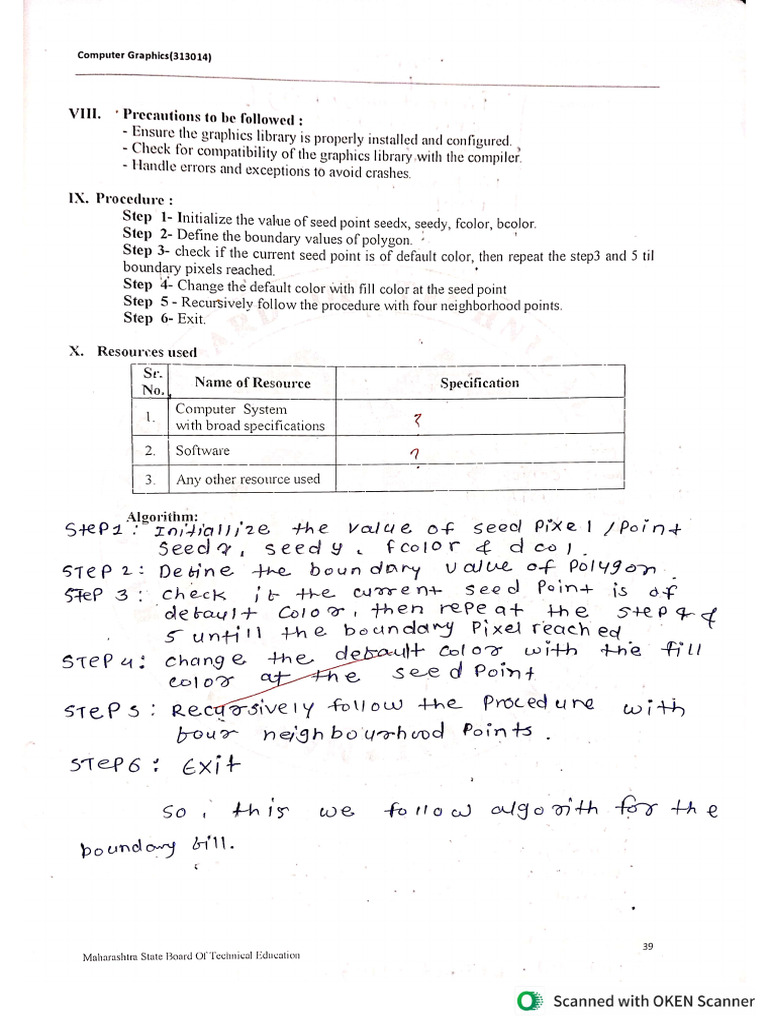 Computer Graphics(313014)
VIII. Precautions to be followed :
- Ensure the graphics library is properly installed and configured.
- Check for compatibility of the graphics library with the compiler.
- Handle errors and exceptions to avoid crashes.
IX. Procedure :
Step 1- Initialize the value of seed point seedx, seedy, fcolor, bcolor.
Step 2- Define the boundary values of polygon.
Step 3- check if the current seed point is of default color, then repeat the step3 and 5 til
boundary pixels reached.
Step 4- Change the default color with fill color at the seed point
Step 5 - Recursively follow the procedure with four neighborhood points.
Step 6- Exit.
X. Resources used
Sr. No. Name of Resource Specification
1. Computer System
with broad specifications ?
2. Software ?
3. Any other resource used
Algorithm:
STEP1 : Initiallize the value of seed Pixel /Point
Seedx, seedy, fcolor & dcol.
STEP 2: Define the boundary value of Polygon.
STEP 3 : check if the current seed Point is of
default color, then repeat the step 4 &
5 untill the boundary Pixel reached.
STEP 4: change the default color with the fill
color at the seed Point
STEP 5 : Recursively follow the Procedure with
four neighbourhood Points.
STEP6 : Exit
So, this we follow algorith for the
boundary fill.
39
Maharashtra State Board Of Technical Education
Scanned with OKEN Scanner